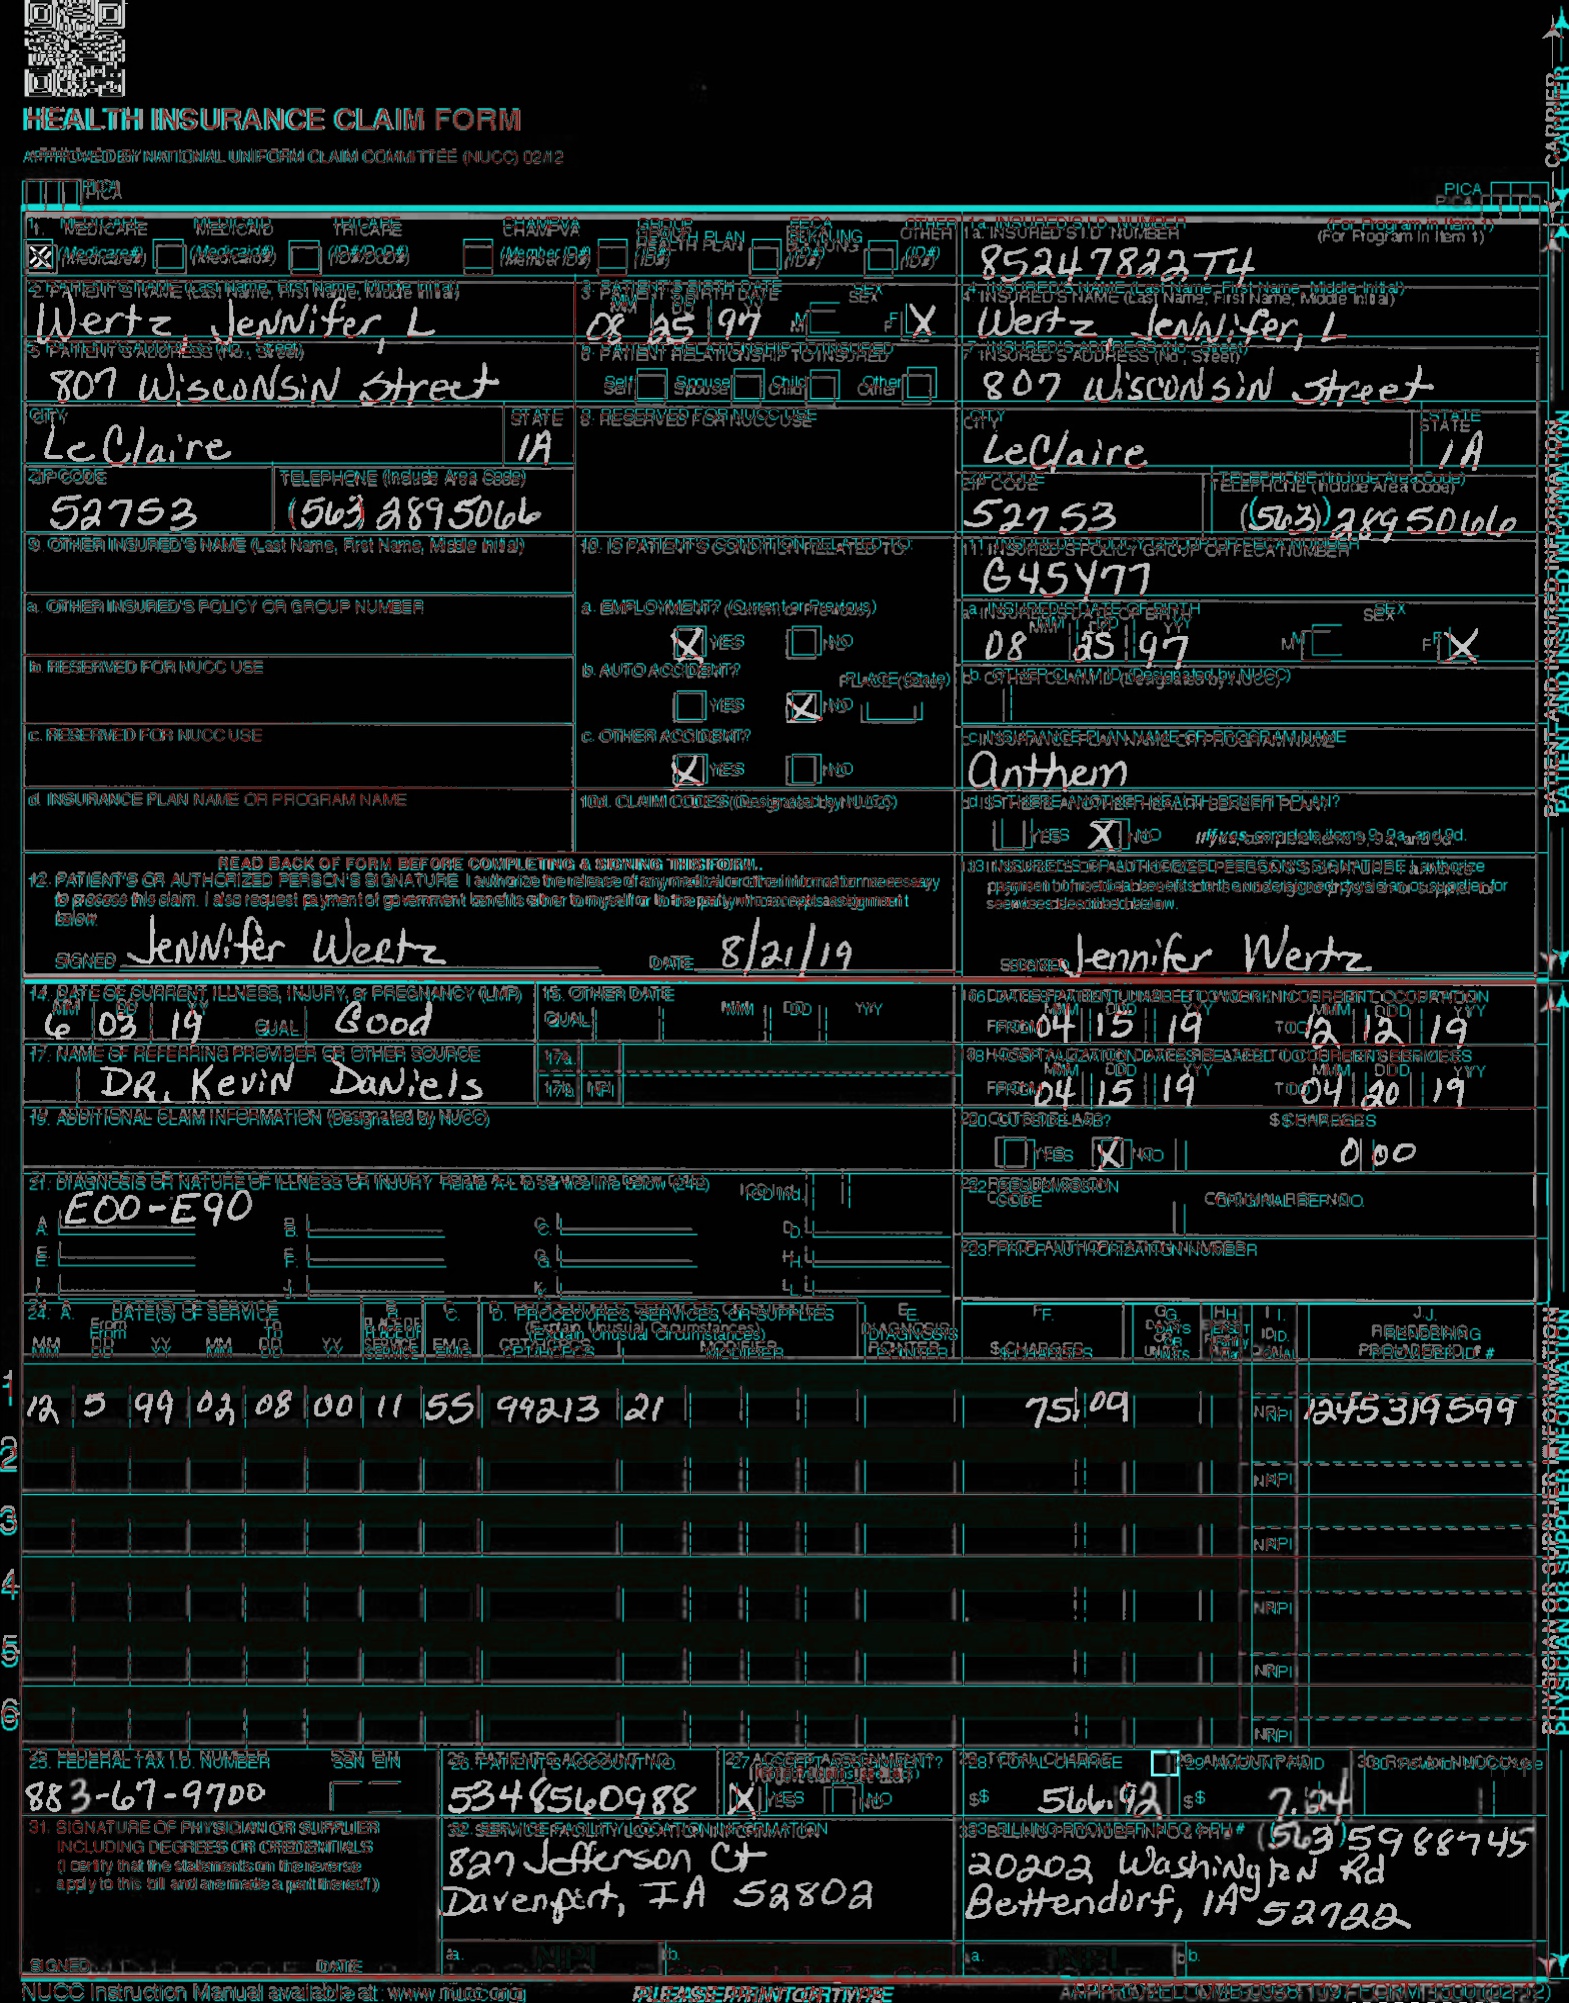 HEALTH INSURANCE CLAIM FORM
APPROVED BY NATIONAL UNIFORM CLAIM COMMITTEE (NUCC) 02/12
PICA
PICA
CARRIER
1. MEDICARE MEDICAID TRICARE CHAMPVA GROUP HEALTH PLAN FECA OTHER
(Medicare#) (Medicaid#) (ID#/DoD#) (Member ID#) (ID#) (ID#) (ID#)
1a. INSURED'S I.D. NUMBER (For Program in Item 1)
85247822T4
2. PATIENT'S NAME (Last Name, First Name, Middle Initial)
Wertz, Jennifer, L
3. PATIENT'S BIRTH DATE SEX
MM DD YY
08 25 97 M F X
4. INSURED'S NAME (Last Name, First Name, Middle Initial)
Wertz, Jennifer, L
5. PATIENT'S ADDRESS (No., Street)
807 Wisconsin Street
6. PATIENT RELATIONSHIP TO INSURED
Self Spouse Child Other
7. INSURED'S ADDRESS (No., Street)
807 Wisconsin Street
CITY STATE
LeClaire IA
8. RESERVED FOR NUCC USE
CITY STATE
LeClaire IA
ZIP CODE TELEPHONE (Include Area Code)
52753 (563) 2895066
ZIP CODE TELEPHONE (Include Area Code)
52753 (563) 2895066
9. OTHER INSURED'S NAME (Last Name, First Name, Middle Initial)
10. IS PATIENT'S CONDITION RELATED TO:
11. INSURED'S POLICY GROUP OR FECA NUMBER
G45Y77
a. OTHER INSURED'S POLICY OR GROUP NUMBER
a. EMPLOYMENT? (Current or Previous)
X YES NO
a. INSURED'S DATE OF BIRTH SEX
MM DD YY
08 25 97 M F X
b. RESERVED FOR NUCC USE
b. AUTO ACCIDENT? PLACE (State)
YES X NO
b. OTHER CLAIM ID (Designated by NUCC)
c. RESERVED FOR NUCC USE
c. OTHER ACCIDENT?
X YES NO
c. INSURANCE PLAN NAME OR PROGRAM NAME
Anthem
d. INSURANCE PLAN NAME OR PROGRAM NAME
10d. CLAIM CODES (Designated by NUCC)
d. IS THERE ANOTHER HEALTH BENEFIT PLAN?
YES X NO If yes, complete items 9, 9a, and 9d.
READ BACK OF FORM BEFORE COMPLETING & SIGNING THIS FORM.
12. PATIENT'S OR AUTHORIZED PERSON'S SIGNATURE I authorize the release of any medical or other information necessary
to process this claim. I also request payment of government benefits either to myself or to the party who accepts assignment
below.
SIGNED Jennifer Wertz DATE 8/21/19
13. INSURED'S OR AUTHORIZED PERSON'S SIGNATURE I authorize
payment of medical benefits to the undersigned physician or supplier for
services described below.
SIGNED Jennifer Wertz
PATIENT AND INSURED INFORMATION
14. DATE OF CURRENT ILLNESS, INJURY, or PREGNANCY (LMP)
MM DD YY
6 03 19 QUAL. Good
15. OTHER DATE
QUAL. MM DD YY
16. DATES PATIENT UNABLE TO WORK IN CURRENT OCCUPATION
MM DD YY MM DD YY
FROM 04 15 19 TO 12 12 19
17. NAME OF REFERRING PROVIDER OR OTHER SOURCE
DR. Kevin Daniels
17a.
17b. NPI
18. HOSPITALIZATION DATES RELATED TO CURRENT SERVICES
MM DD YY MM DD YY
FROM 04 15 19 TO 04 20 19
19. ADDITIONAL CLAIM INFORMATION (Designated by NUCC)
20. OUTSIDE LAB? $ CHARGES
YES X NO 0 00
21. DIAGNOSIS OR NATURE OF ILLNESS OR INJURY Relate A-L to service line below (24E) ICD Ind.
A. E00-E90 B. C. D.
E. F. G. H.
I. J. K. L.
22. RESUBMISSION CODE ORIGINAL REF. NO.
23. PRIOR AUTHORIZATION NUMBER
24. A. DATE(S) OF SERVICE B. C. D. PROCEDURES, SERVICES, OR SUPPLIES E. F. G. H. I. J.
From To PLACE OF (Explain Unusual Circumstances) DIAGNOSIS DAYS OR ID. RENDERING
MM DD YY MM DD YY SERVICE EMG CPT/HCPCS MODIFIER POINTER $ CHARGES UNITS QUAL. PROVIDER ID. #
1 12 5 99 02 08 00 11 55 99213 21 75 09 NPI 1245319599
2 NPI
3 NPI
4 NPI
5 NPI
6 NPI
25. FEDERAL TAX I.D. NUMBER SSN EIN
883-67-9700
26. PATIENT'S ACCOUNT NO.
5348560988
27. ACCEPT ASSIGNMENT?
X YES NO
28. TOTAL CHARGE
$ 566.92
29. AMOUNT PAID
$
30. Rsvd for NUCC Use
31. SIGNATURE OF PHYSICIAN OR SUPPLIER
INCLUDING DEGREES OR CREDENTIALS
(I certify that the statements on the reverse
apply to this bill and are made a part thereof.)
SIGNED DATE
32. SERVICE FACILITY LOCATION INFORMATION
827 Jefferson Ct
Davenport, IA 52802
a. b.
33. BILLING PROVIDER INFO & PH # (563) 5988745
20202 Washington Rd
Bettendorf, IA 52722
a. b.
PHYSICIAN OR SUPPLIER INFORMATION
NUCC Instruction Manual available at: www.nucc.org
PLEASE PRINT OR TYPE